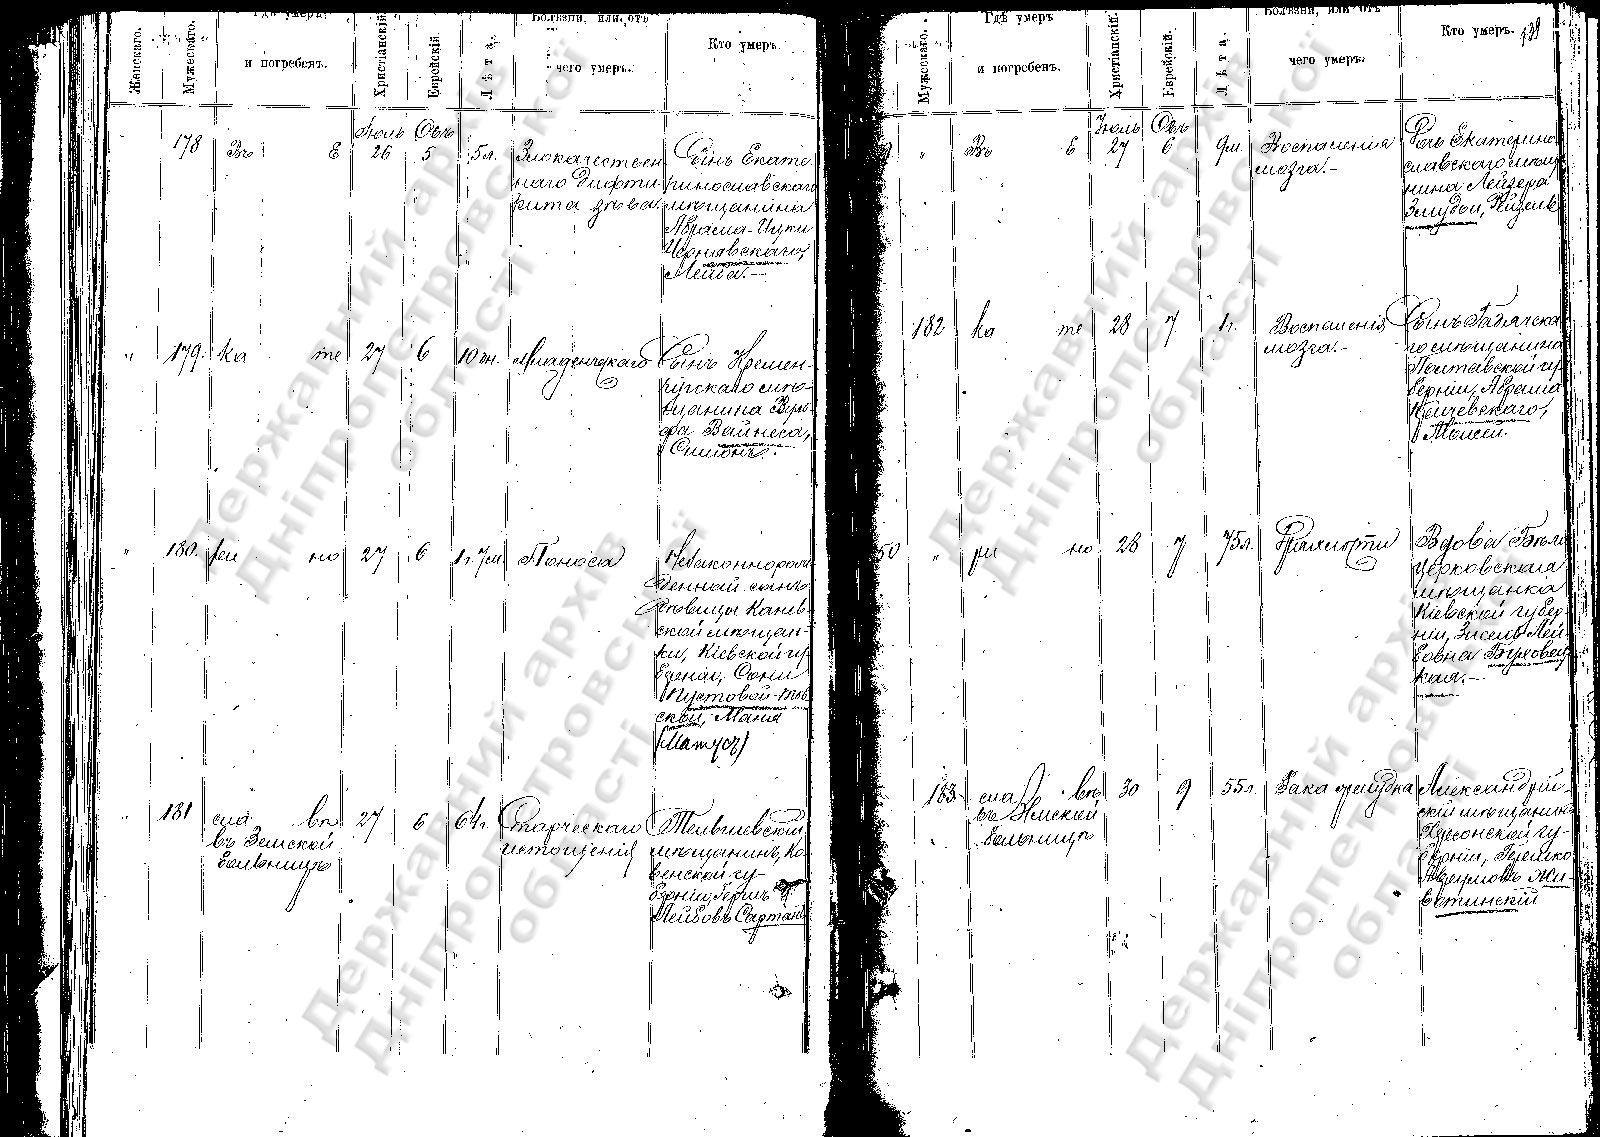 Женскаго.
Мужескаго.
Гдѣ умеръ
и погребенъ.
Христіанскій.
Еврейскій.
Лѣта.
Болѣзни, или отъ
чего умеръ.
Кто умеръ.
Іюль Овъ
178 Въ Е 26 5 5 л. Злокачествен
наго Дифте
рита зѣва.
Сынъ Екате
ринославскаго
мѣщанина
Абрама-Ицки
Чернявскаго,
Лейба.—
" 179. ка те 27 6 10 дн. Младенческаго
Сынъ Кремен-
чугскаго мѣ-
щанина Воль-
фа Вайнеса,
Симонъ.
" 180. ри но 27 6 1 г. 7 м. Поноса
Незаконнорож
денный сынъ
дѣвицы Канев-
ской мѣщан-
ки, Кіевской гу-
берніи, Сони
Пустовой-тов
ской, Маня
(Матусъ)
" 181 сла вѣ 27 6 64 г. Старческаго
истощенія
въ Земской
больницѣ
Тельшевскій
мѣщанинъ, Ко-
венской гу-
берніи, Гершъ
Лейбовъ Сартанъ
Мужескаго.
Гдѣ умеръ
и погребенъ.
Христіанскій.
Еврейскій.
Лѣта.
Болѣзни, или отъ
чего умеръ.
Кто умеръ.
Іюль Овъ
" Въ Е 27 6 9 м. Воспаленія
мозга.—
Дочь Екатерино
славскаго мѣщ
нина Лейзера
Змудои, Рейзель
182 ка те 28 7 1 г. Воспаленія
мозга.—
Сынъ Гадячска
го мѣщанина
Полтавской гу
берніи, Абрама
Кочевскаго,
Моисей.
50 " ри но 28 7 75 л. Дряхлости
Вдова Бѣло
церковская
мѣщанка
Кіевской губер
ніи, Зисель Лей
бовна Берховец
кая.—
183 сла вѣ 30 9 55 л. Рака желудка
въ Земской
больницѣ
Александрій-
скій мѣщанинъ
Херсонской гу-
берніи, Гершко
Жи-
вотинскій